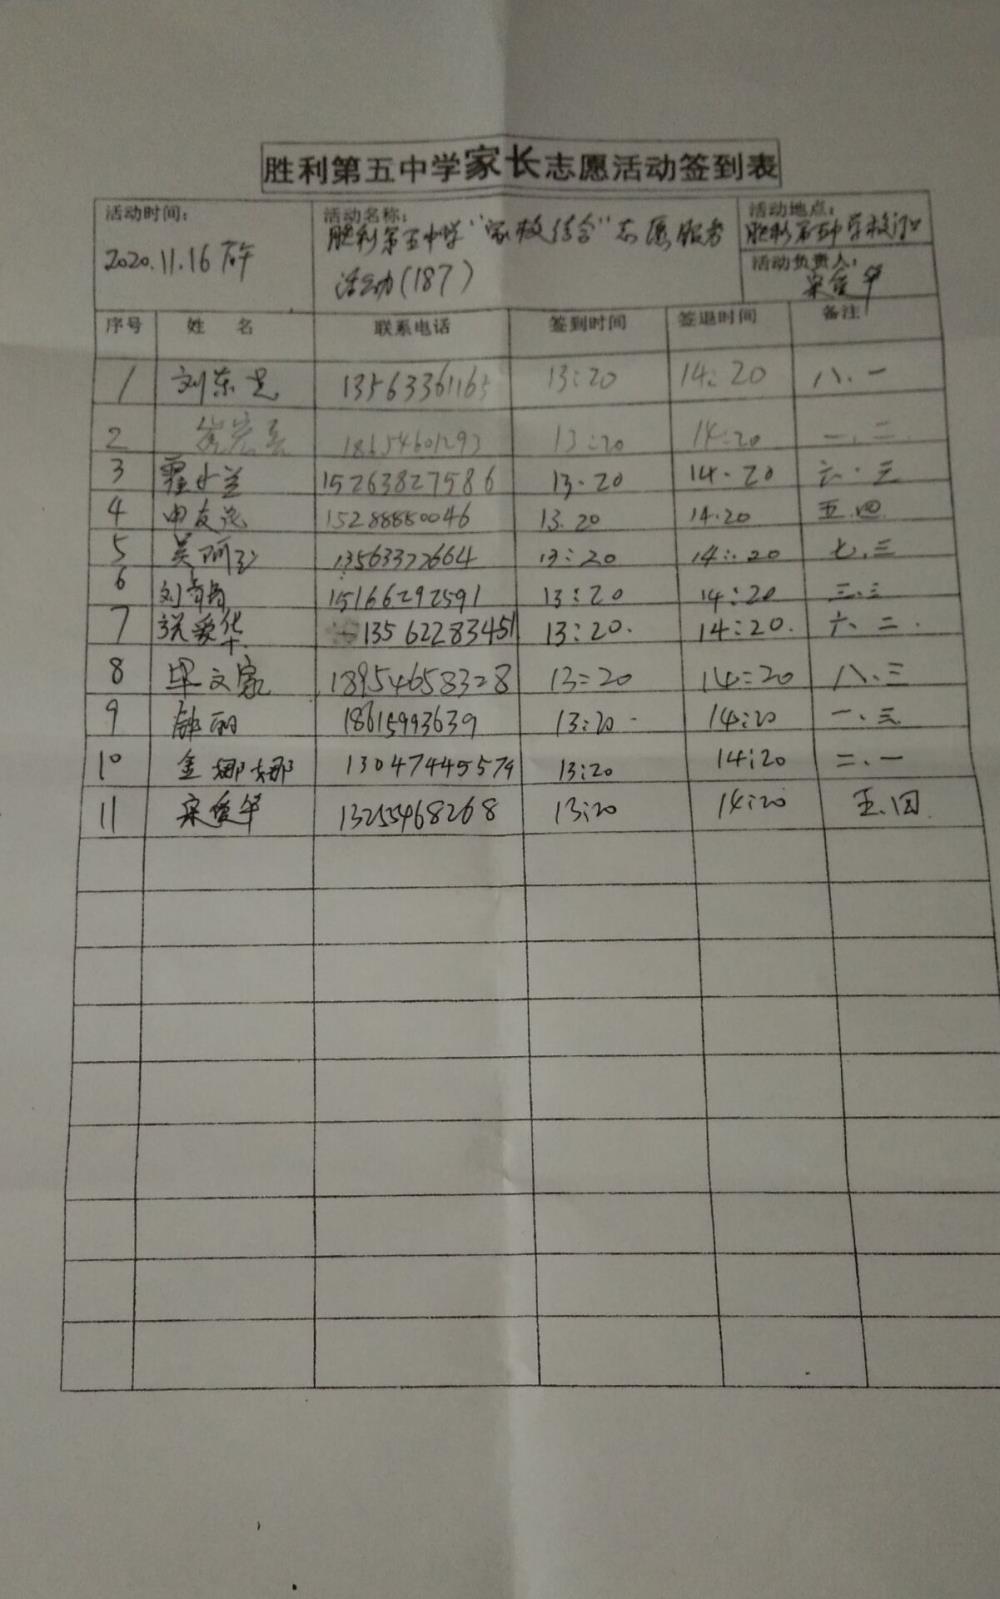 胜利第五中学家长志愿活动签到表
活动时间：
2020.11.16 下午
活动名称：
胜利第五中学“家校结合”志愿服务
活动(187)
活动地点：
胜利第五中学校门口
活动负责人：
宋爱华
序号 姓 名 联系电话 签到时间 签退时间 备注
1 刘东 13563361165 13:20 14:20 八.一
2 18654601293 13:20 14:20 一.二
3 15263827586 13.20 14.20 六.三
4 申友 15288880046 13.20 14.20 五.四
5 吴阿 13563372664 13:20 14:20 七.三
6 刘 15166292591 13:20 14:20 三.三
7 张爱华 13562283451 13:20. 14:20. 六.二.
8 毕文家 18954658328 13:20 14:20 八.三
9 丽 18615993639 13:20 14:20 一.三
10 金娜娜 13047445574 13:20 14:20 二.一
11 宋爱华 13255468268 13:20 14:20 五.四